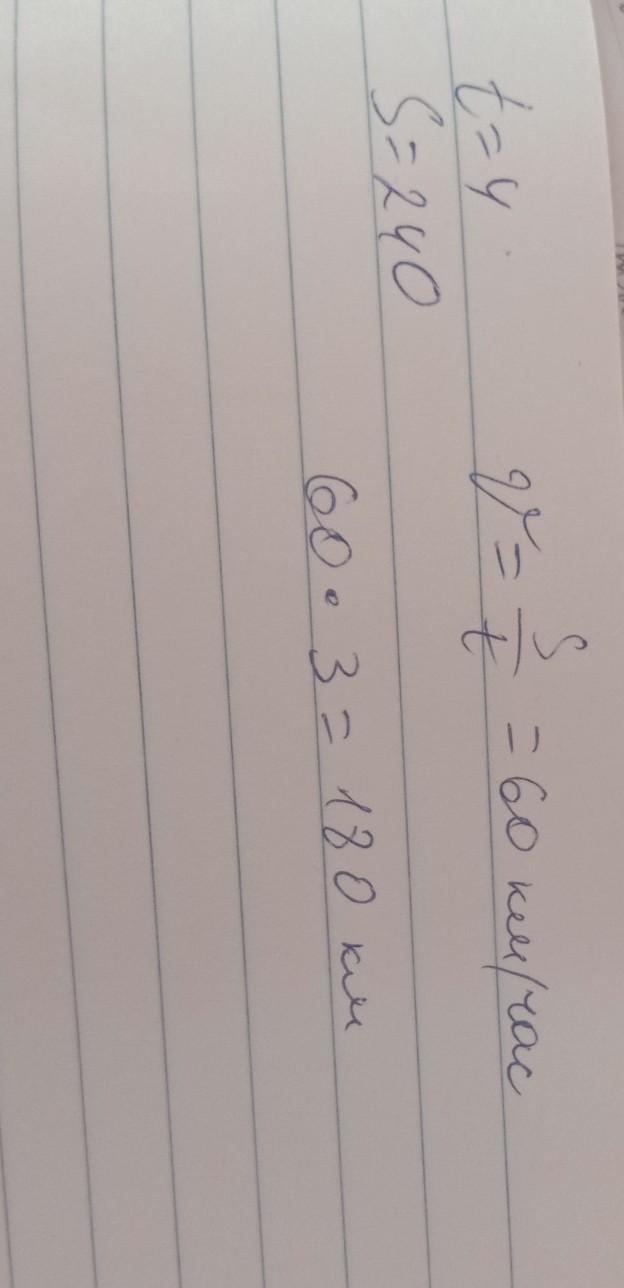 t=4
v = S/t = 60 км/час
S=240
60 · 3 = 180 км